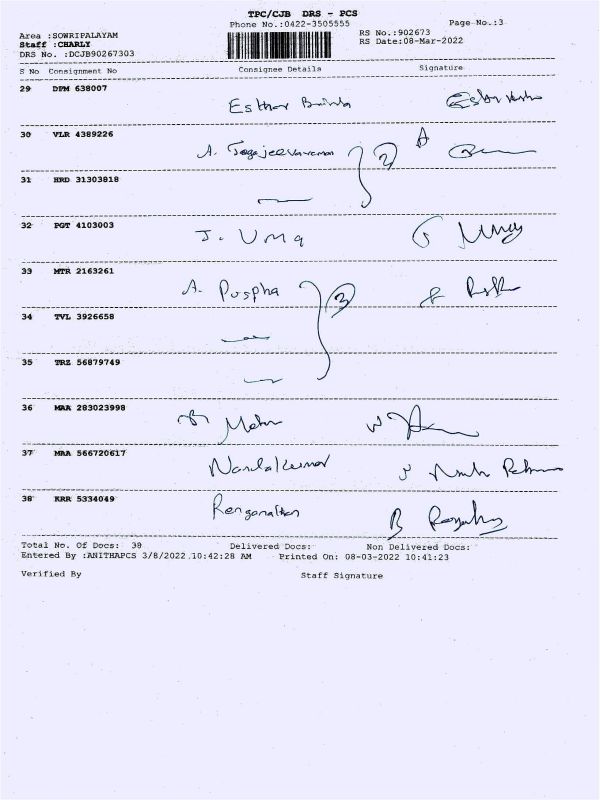 TPC/CJB DRS - PCS
Phone No.:0422-3505555
Page No.:3
Area :SOWRIPALAYAM
Staff :CHARLY
DRS No. :DCJB90267303
RS No.:902673
RS Date:08-Mar-2022
S No Consignment No Consignee Details Signature
29 DPM 638007 Esther
30 VLR 4389226 A. 2
31 HRD 31303818
32 PGT 4103003 J. Uma
33 MTR 2163261 A. Puspha 3
34 TVL 3926658
35 TRZ 56879749
36 MAA 283023998
37 MAA 566720617 Nandakumar
38 KRR 5334049 Renganathan
Total No. Of Docs: 38 Delivered Docs: Non Delivered Docs:
Entered By :ANITHAPCS 3/8/2022 10:42:28 AM Printed On: 08-03-2022 10:41:23
Verified By Staff Signature